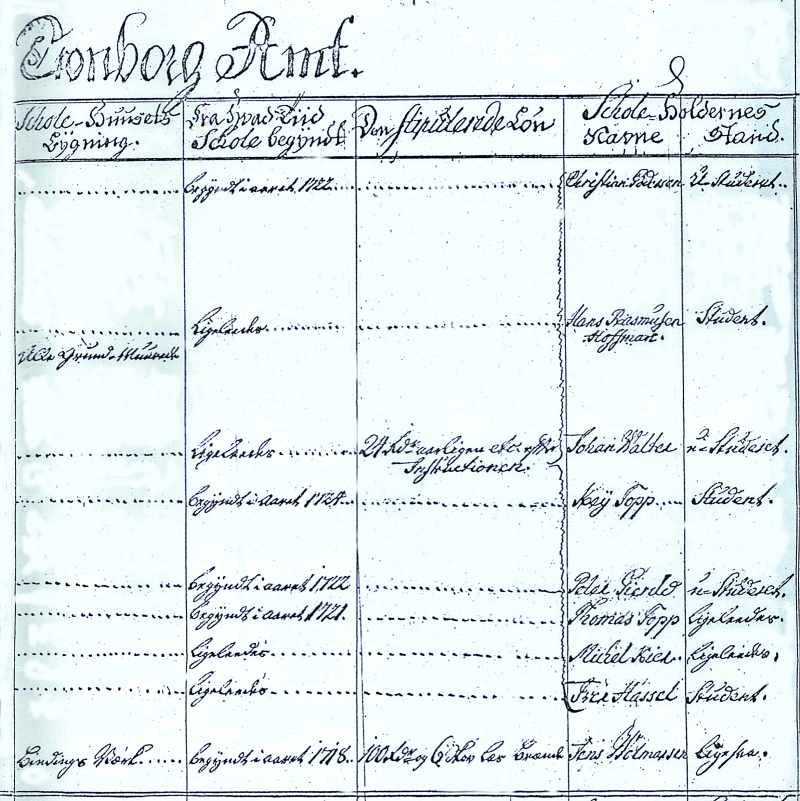 Cronborg Amt.
Schole-Huusets Bygning. Fra Hvad Tiid Schole begyndt Den stipulerede Løn Schole-Holdernes Navne Stand.
begyndt i aaret 1722 Christian Pedersen U-Studeret.
Ligeledes Hans Rasmusen Hoffman. Student.
Alle Grund-Muurede
Ligeledes 24 Rdr aarligen etc. efter Instructionen. Johan Walter u-Studeret.
begyndt i Aaret 1724 Key Topp Student.
begyndt i aaret 1722 Peder u-Studeret.
begyndt i aaret 1721. Thomas Topp Ligeledes.
Ligeledes Michel Ligeledes.
Ligeledes Hassel Student.
Bindings Værk. begyndt i aaret 1718. 100 Rdr og 6 Jens Ligesaa.